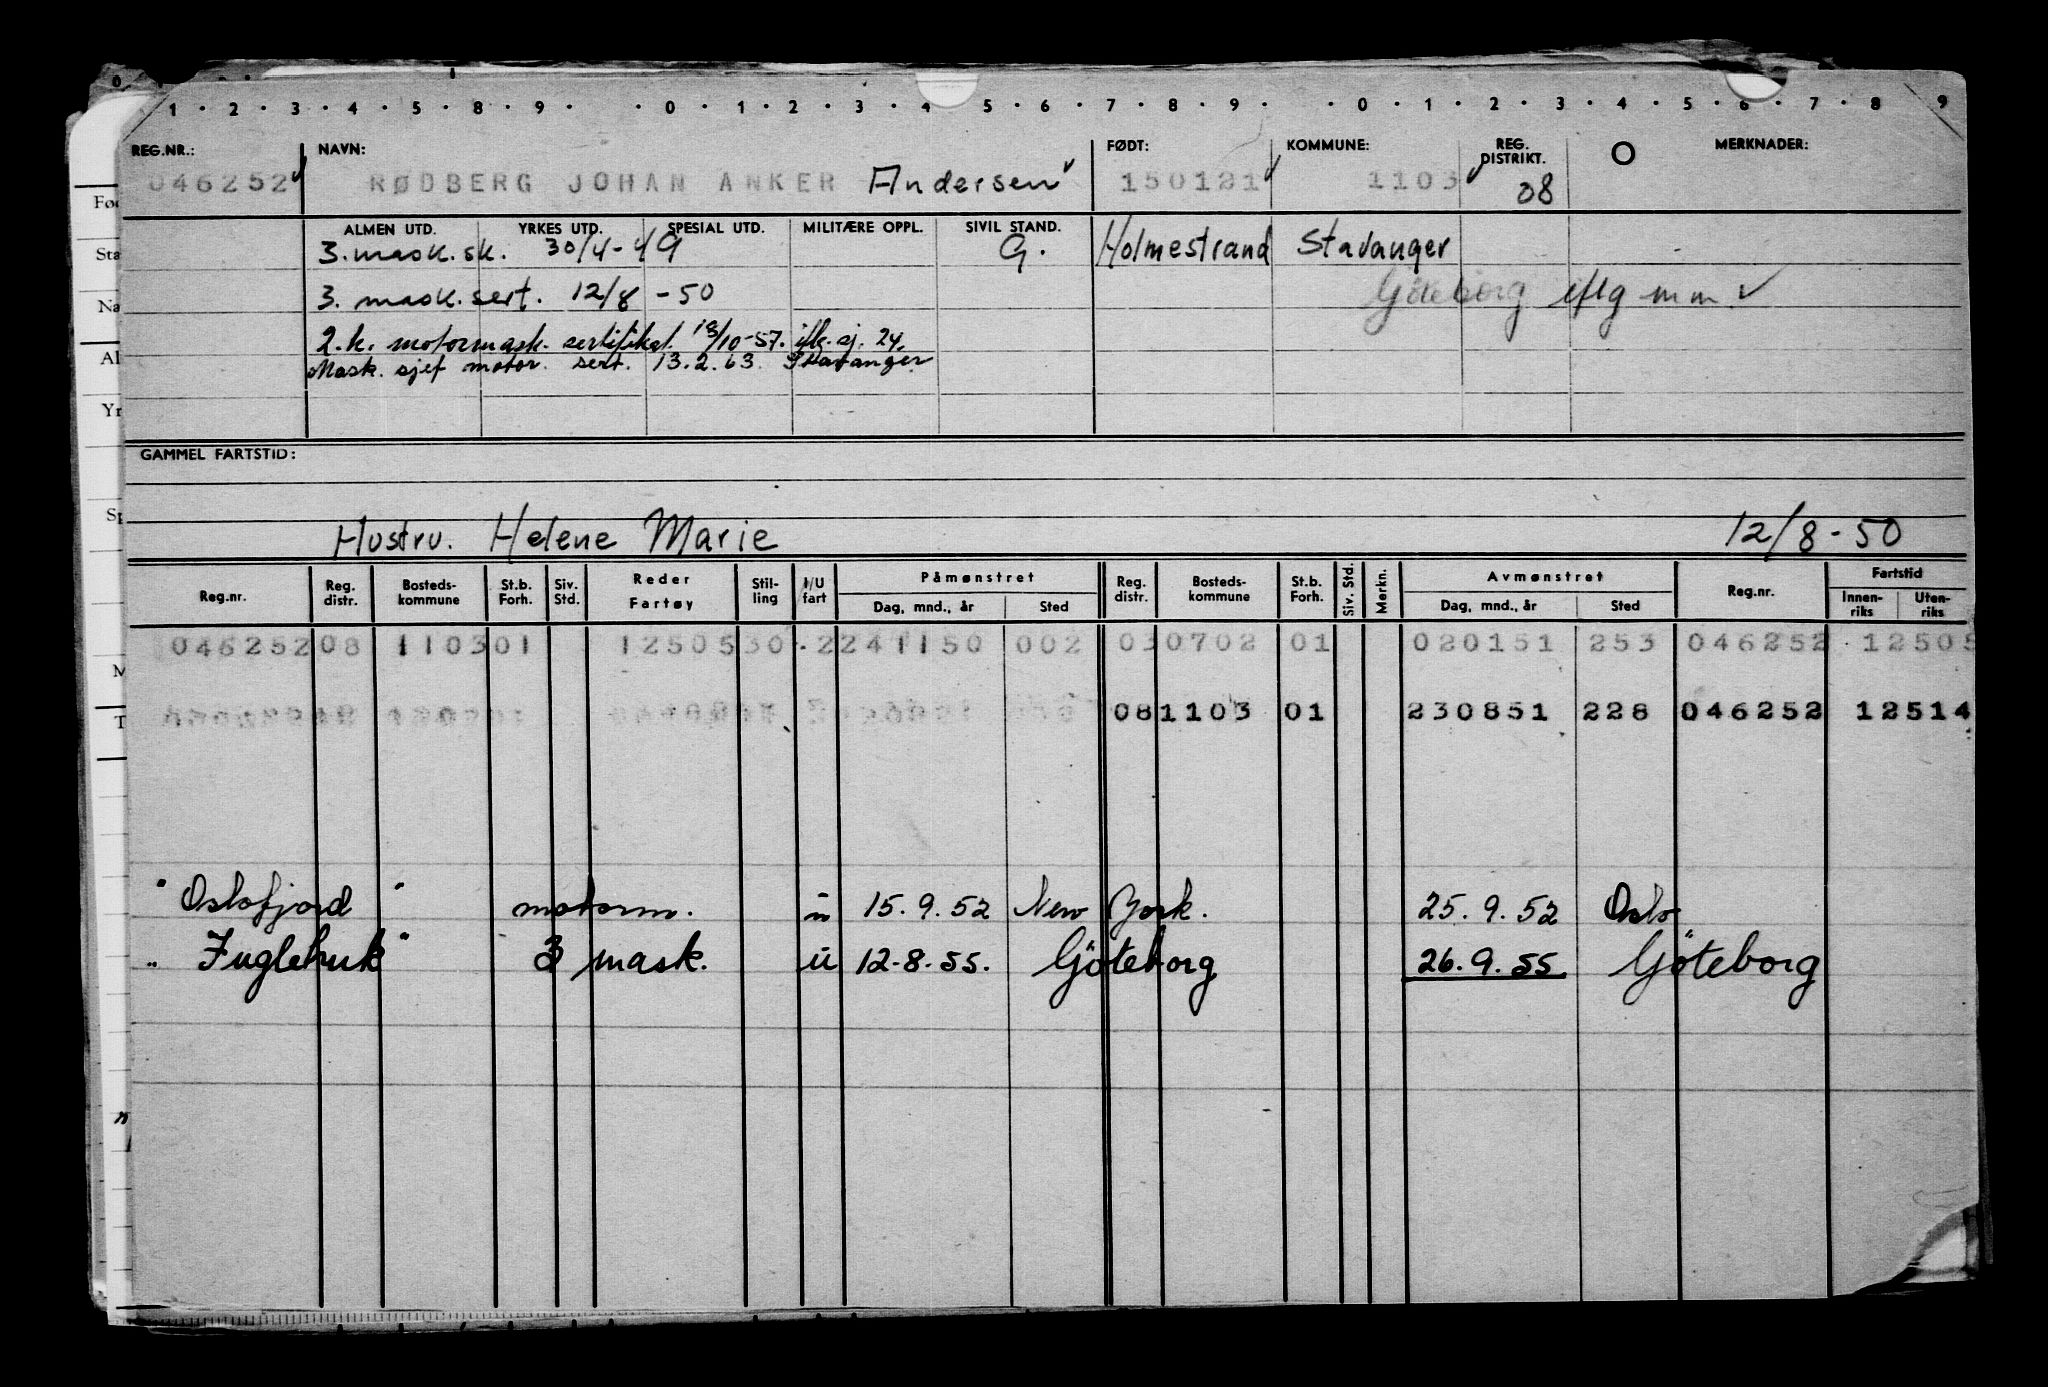 0
1 · 2 · 3 · 4 · 5 · 8 · 9 · · 0 · 1 · 2 · 3 · 4 · 5 · 6 · 7 · 8 · 9 · · 0 · 1 · 2 · 3 · 4 · 5 · 6 · 7 · 8 9
REG.NR.: NAVN: FØDT: KOMMUNE: REG. DISTRIKT. O MERKNADER:
046252 RØDBERG JOHAN ANKER Andersen 150121 1103 08
ALMEN UTD. YRKES UTD. SPESIAL UTD. MILITÆRE OPPL. SIVIL STAND.
3. mask. sk. 30/4-49 G. Holmestrand Stavanger
3. mask. sert. 12/8 -50 Göteborg iflg m.m.
2. k. motormask. sertifikat /10-57. iflg. sj. 24.
Mask. sjef motor. sert. 13.2.63. Stavanger
GAMMEL FARTSTID:
Hustru. Helene Marie 12/8-50
Reg.nr. Reg. distr. Bosteds-kommune St.b. Forh. Siv. Std. Reder Fartøy Stil-ling I/U fart Påmønstret Dag, mnd., år Sted Reg. distr. Bosteds-kommune St.b. Forh. Siv. Std. Merkn. Avmønstret Dag, mnd., år Sted Reg.nr. Fartstid Innen-riks Uten-riks
046252 08 1103 01 12505 30 · 2 241150 002 03 0702 01 020151 253 046252 · 12505
08 1103 01 230851 228 046252 12514
" Oslofjord " motorm. u 15.9.52 New York. 25.9.52 Oslo
" Fuglehuk " 3 mask. u 12-8-55. Göteborg 26.9.55 Göteborg